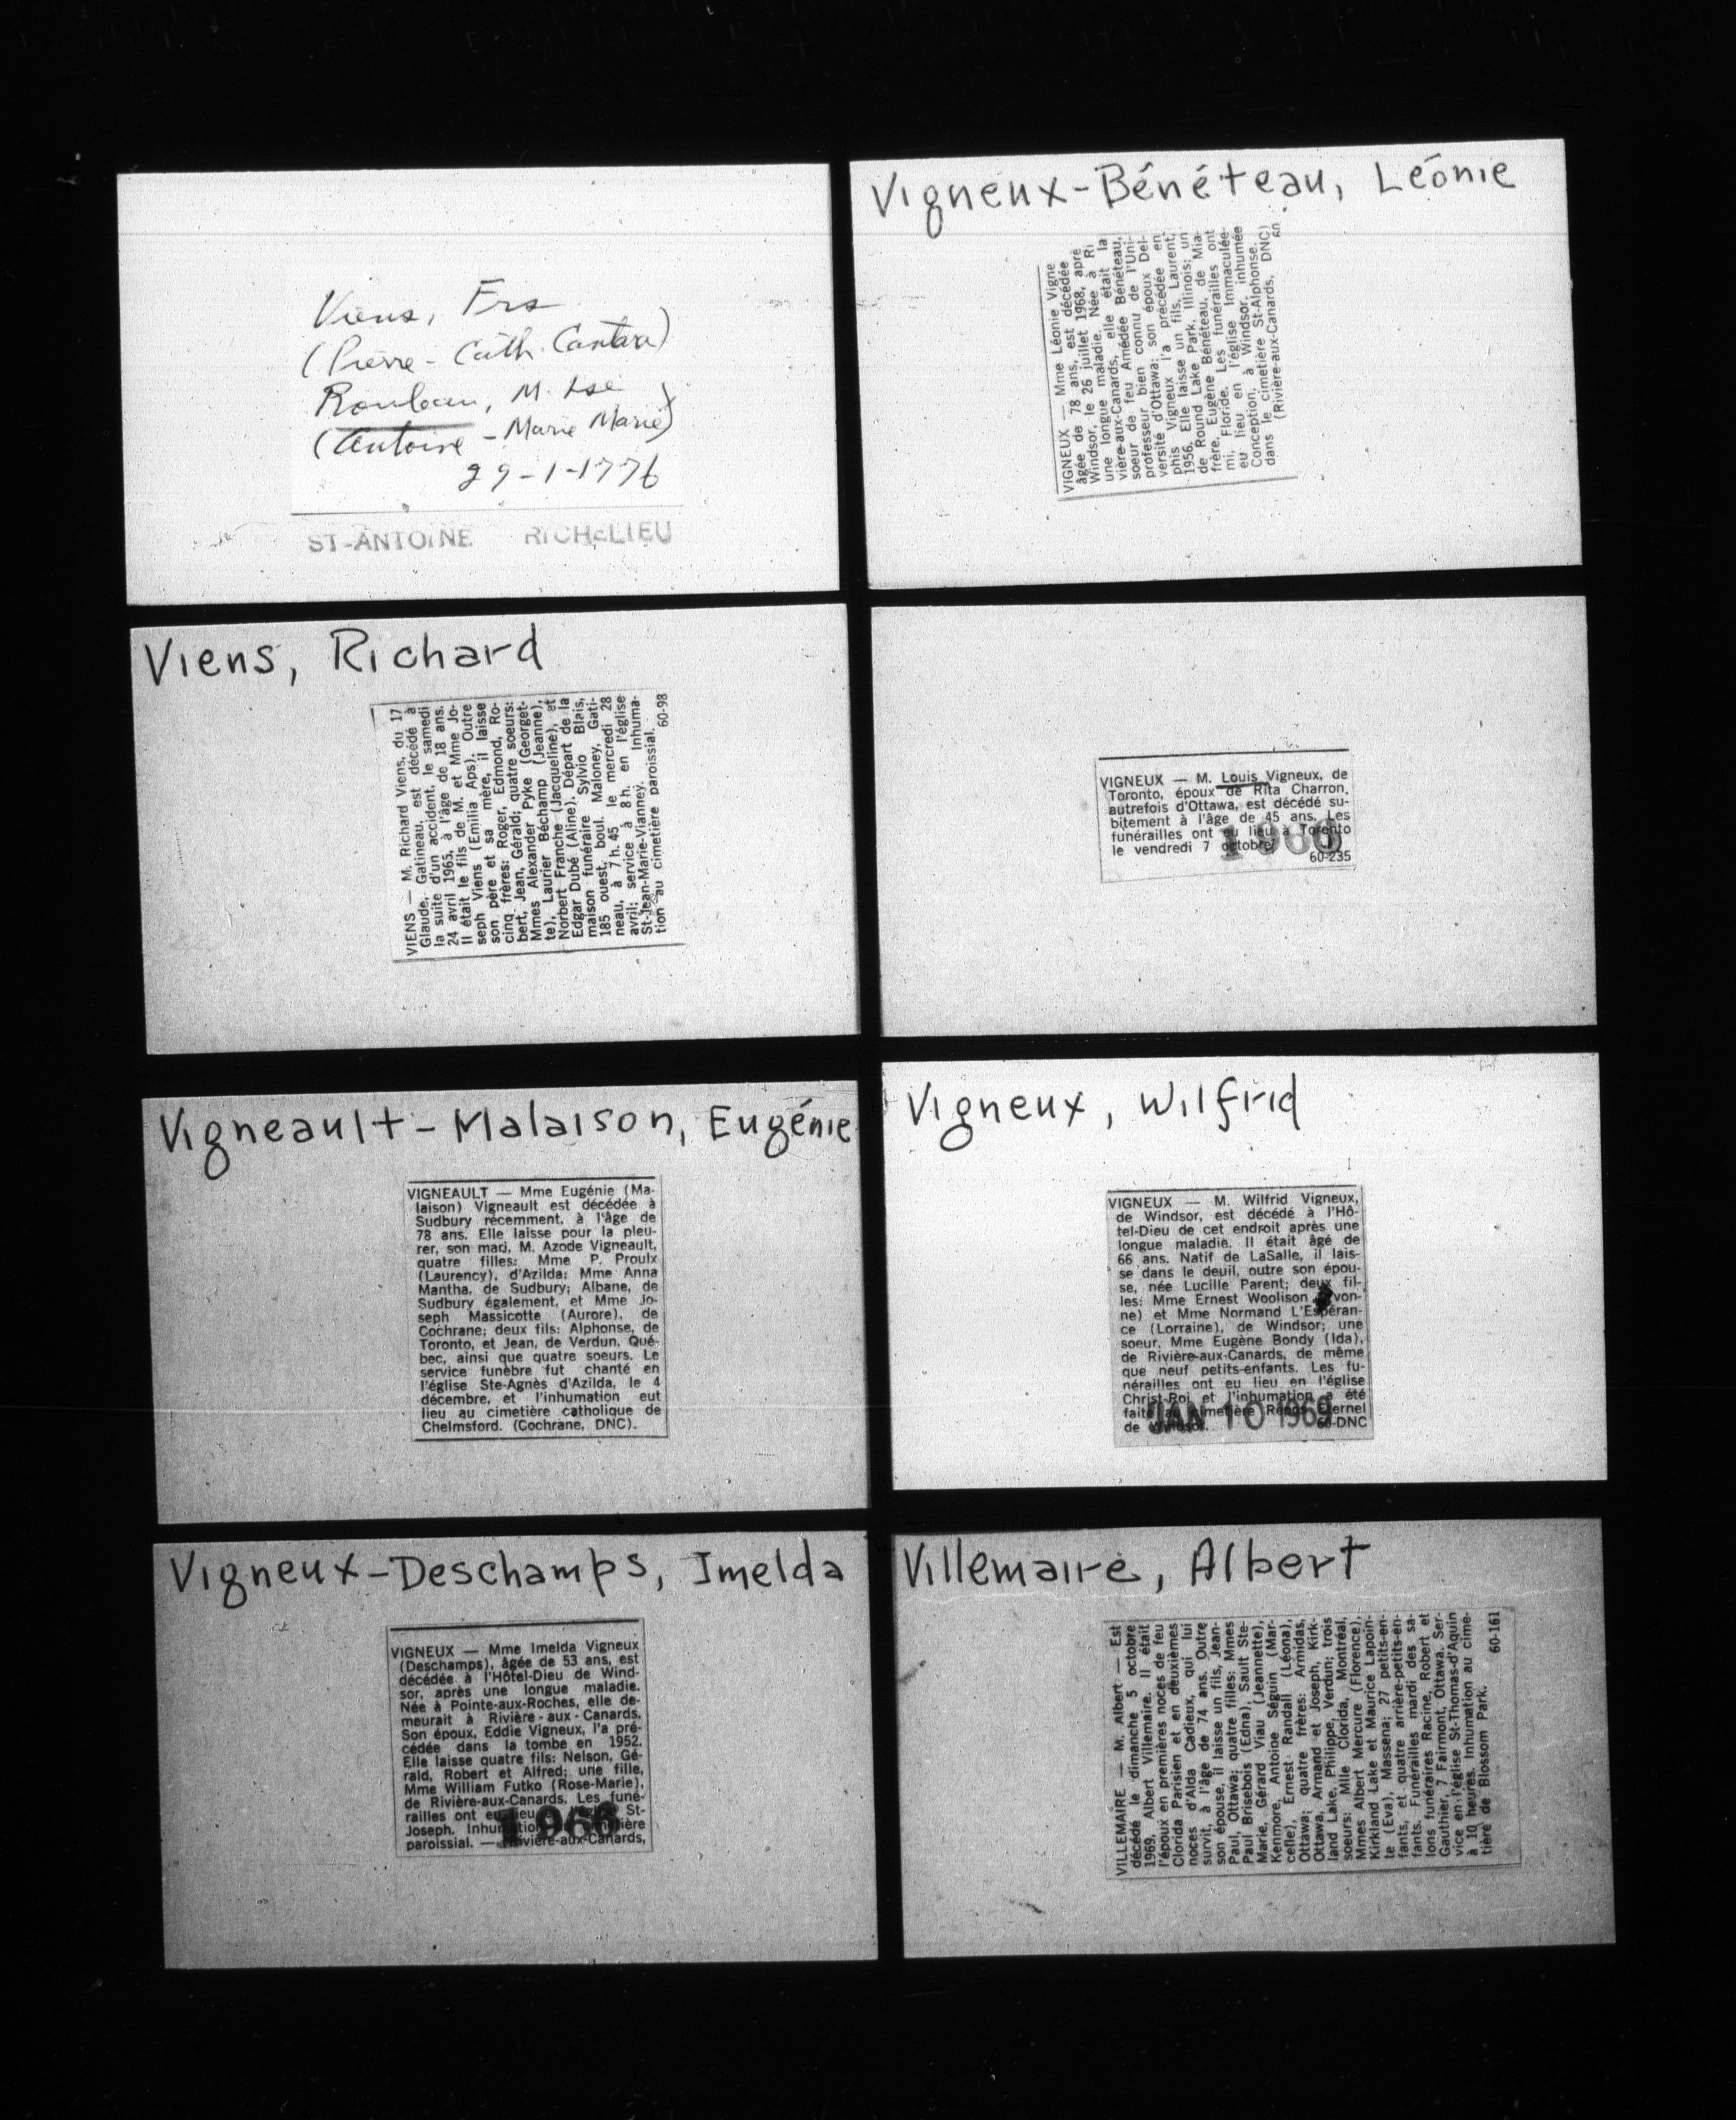 Viens, Frs
(Pierre - Cath. Cantara)
Rouleau, M. Lse
(Antoine - Marie Marie)
29-1-1776
ST-ANTOINE RICHELIEU
Viens, Richard
VIENS — M. Richard Viens, du 17
Glaude, Gatineau, est décédé à
la suite d'un accident, le samedi
24 avril 1965, à l'âge de 18 ans.
Il était le fils de M. et Mme Jo-
seph Viens (Emilia Aps). Outre
son père et sa mère, il laisse
cinq frères: Roger, Edmond, Ro-
bert, Jean, Gérald; quatre soeurs:
Mmes Alexander Pyke (Georget-
te), Laurier Béchamp (Jeanne),
Norbert Franche (Jacqueline), et
Edgar Dubé (Aline). Départ de la
maison funéraire Sylvio Blais,
185 ouest, boul. Maloney, Gati-
neau, à 7 h. 45 le mercredi 28
avril; service à 8 h. en l'église
St-Jean-Marie-Vianney. Inhuma-
tion au cimetière paroissial. 60-98
Vigneault-Malaison, Eugénie
VIGNEAULT — Mme Eugénie (Ma-
laison) Vigneault est décédée à
Sudbury récemment, à l'âge de
78 ans. Elle laisse pour la pleu-
rer, son mari, M. Azode Vigneault,
quatre filles: Mme P. Proulx
(Laurency), d'Azilda; Mme Anna
Mantha, de Sudbury; Albane, de
Sudbury également, et Mme Jo-
seph Massicotte (Aurore), de
Cochrane; deux fils: Alphonse, de
Toronto, et Jean, de Verdun, Qué-
bec, ainsi que quatre soeurs. Le
service funèbre fut chanté en
l'église Ste-Agnès d'Azilda, le 4
décembre, et l'inhumation eut
lieu au cimetière catholique de
Chelmsford. (Cochrane, DNC).
Vigneux-Deschamps, Imelda
VIGNEUX — Mme Imelda Vigneux
(Deschamps), âgée de 53 ans, est
décédée à l'Hôtel-Dieu de Wind-
sor, après une longue maladie.
Née à Pointe-aux-Roches, elle de-
meurait à Rivière-aux-Canards.
Son époux, Eddie Vigneux, l'a pré-
cédée dans la tombe en 1952.
Elle laisse quatre fils: Nelson, Gé-
rald, Robert et Alfred; une fille,
Mme William Futko (Rose-Marie),
de Rivière-aux-Canards. Les funé-
railles ont eu lieu St-
Joseph. Inhumation
paroissial. — Rivière-aux-Canards,
1966
Vigneux-Bénéteau, Léonie
VIGNEUX — Mme Léonie Vigne
âgée de 78 ans, est décédée
Windsor, le 26 juillet 1968, aprè
une longue maladie. Née à Ri
vière-aux-Canards, elle était la
soeur de feu Amédée Bénéteau,
professeur bien connu de l'Uni-
versité d'Ottawa; son époux Del-
phis Vigneux l'a précédée en
1956. Elle laisse un fils, Laurent,
de Round Lake Park, Illinois; un
frère, Eugène Bénéteau, de Mia-
mi, Floride. Les funérailles ont
eu lieu en l'église Immaculée-
Conception, à Windsor, inhumée
dans le cimetière St-Alphonse.
(Rivière-aux-Canards, DNC)
60
VIGNEUX — M. Louis Vigneux, de
Toronto, époux de Rita Charron,
autrefois d'Ottawa, est décédé su-
bitement à l'âge de 45 ans. Les
funérailles ont eu lieu à Toronto
le vendredi 7 octobre
1966
60-235
Vigneux, Wilfrid
VIGNEUX — M. Wilfrid Vigneux,
de Windsor, est décédé à l'Hô-
tel-Dieu de cet endroit après une
longue maladie. Il était âgé de
66 ans. Natif de LaSalle, il lais-
se dans le deuil, outre son épou-
se, née Lucille Parent; deux fil-
les: Mme Ernest Woolison (Yvon-
ne) et Mme Normand L'Espéran-
ce (Lorraine), de Windsor; une
soeur, Mme Eugène Bondy (Ida),
de Rivière-aux-Canards, de même
que neuf petits-enfants. Les fu-
nérailles ont eu lieu en l'église
Christ-Roi et l'inhumation a été
faite au cimetière Repos Eternel
de Windsor. 60-DNC
JAN 10 1969
Villemaire, Albert
VILLEMAIRE — M. Albert — Est
décédé le dimanche 5 octobre
1969, Albert Villemaire. Il était
l'époux en premières noces de feu
Clorida Parisien et en deuxièmes
noces d'Alda Cadieux, qui lui
survit, à l'âge de 74 ans. Outre
son épouse, il laisse un fils, Jean-
Paul, Ottawa; quatre filles: Mmes
Paul Brisebois (Edna), Sault Ste-
Marie, Gérard Viau (Jeannette),
Kenmore, Antoine Séguin (Mar-
celle), Ernest Randall (Léona),
Ottawa; quatre frères: Armidas,
Ottawa, Armand et Joseph, Kirk-
land Lake, Philippe, Verdun; trois
soeurs: Mlle Clorida, Montréal,
Mmes Albert Mercure (Florence),
Kirkland Lake et Maurice Lapoin-
te (Eva), Massena; 27 petits-en-
fants, et quatre arrière-petits-en-
fants. Funérailles mardi des sa-
lons funéraires Racine, Robert et
Gauthier, 7 Fairmont, Ottawa. Ser-
vice en l'église St-Thomas-d'Aquin
à 10 heures. Inhumation au cime-
tière de Blossom Park. 60-161